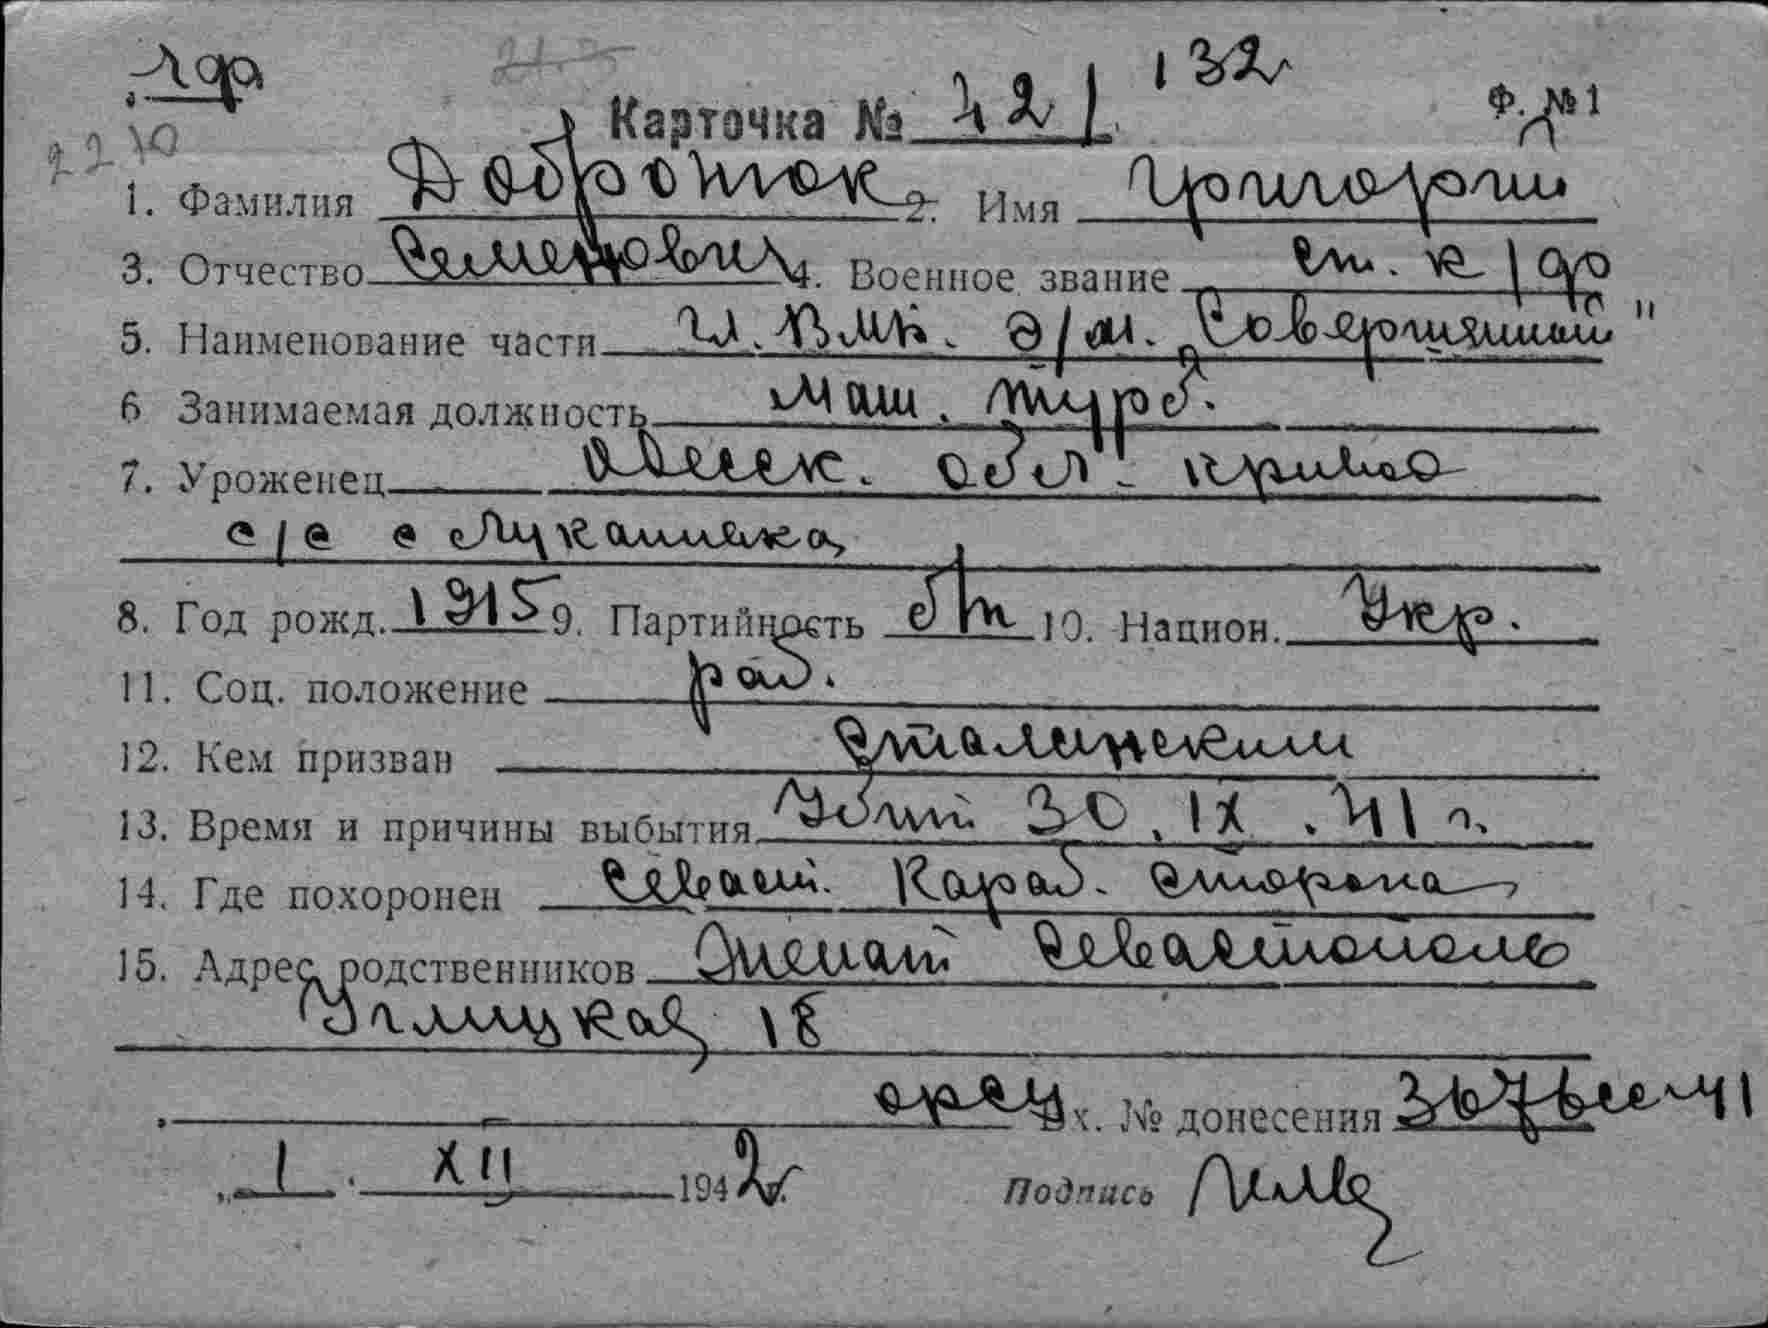 132
Карточка № 421 Ф. №1
1. Фамилия Доброток 2. Имя Григорий
3. Отчество Семенович 4. Военное звание ст. к/фл
5. Наименование части Ч. В.М.Б. Э/м. „Совершенный"
6 Занимаемая должность маш. турб.
7. Уроженец Одесск. обл.
с/с с Лукашивка
8. Год рожд. 1915 9. Партийность б/п 10. Национ. Укр.
11. Соц. положение раб.
12. Кем призван Сталинским
13. Время и причины выбытия Убит 30.IX.41 г.
14. Где похоронен Севаст. Караб. сторона
15. Адрес родственников Женат Севастополь
Углицкая 18
Вх. № донесения
„1. XII 1942 г. Подпись